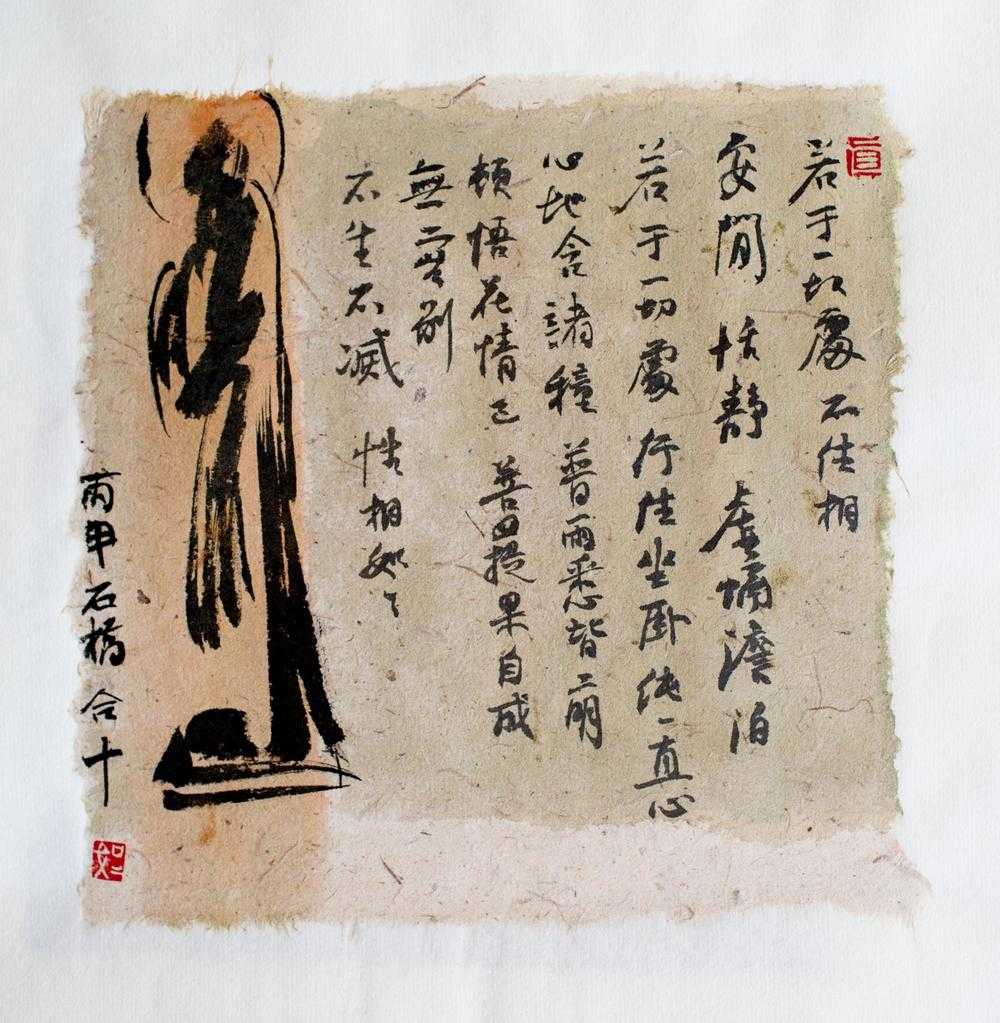 若于一切處 不住相
安閒 恬靜 虛融澹泊
若于一切處 行住坐臥 純一直心
心地含諸種 普雨悉皆萌
頓悟花情已 菩提果自成
無二 別
不生不滅 性相如々
丙申 石橋 合十
如